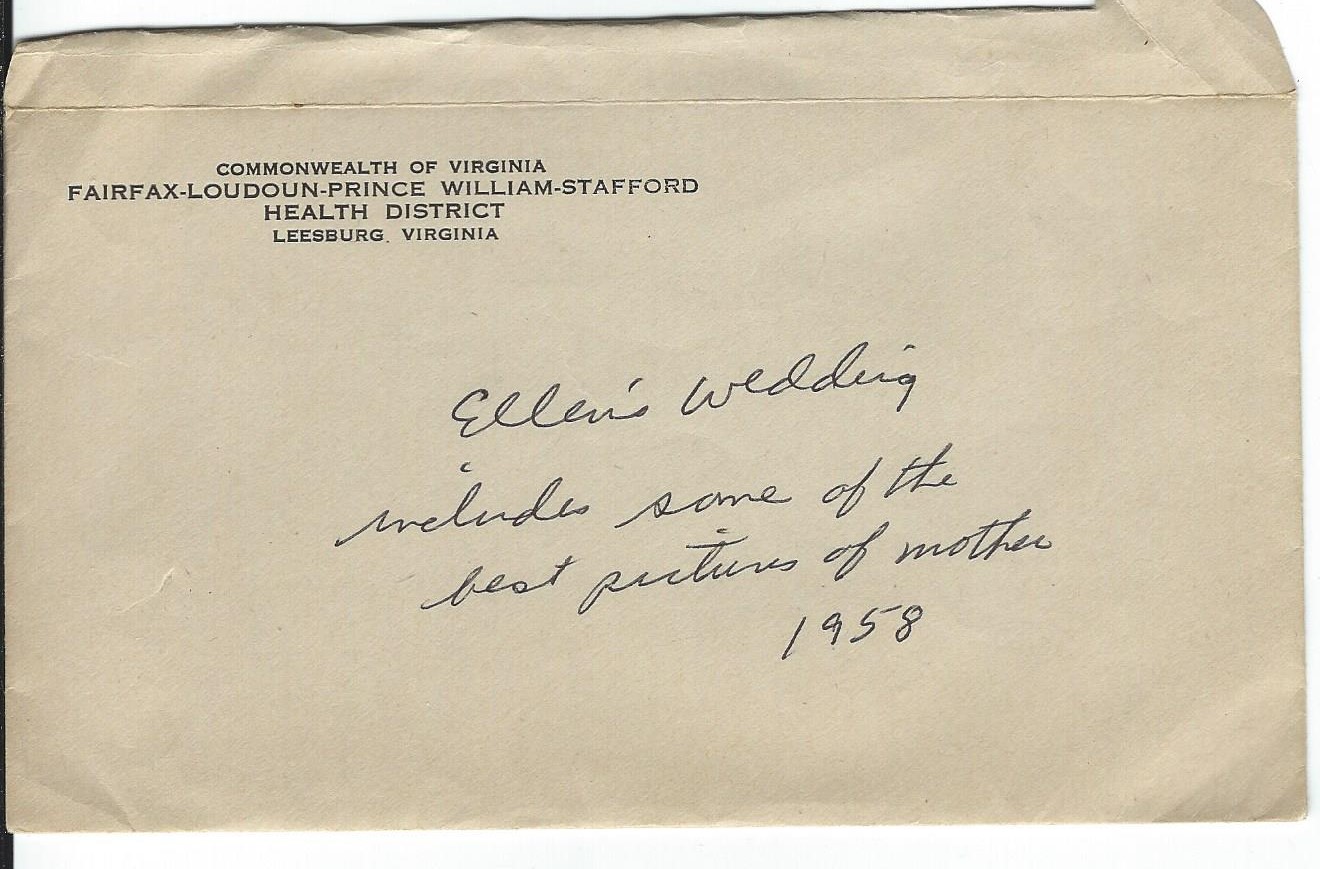 COMMONWEALTH OF VIRGINIA
FAIRFAX-LOUDOUN-PRINCE WILLIAM-STAFFORD
HEALTH DISTRICT
LEESBURG, VIRGINIA
Ellen's wedding
includes some of the
best pictures of mother
1958